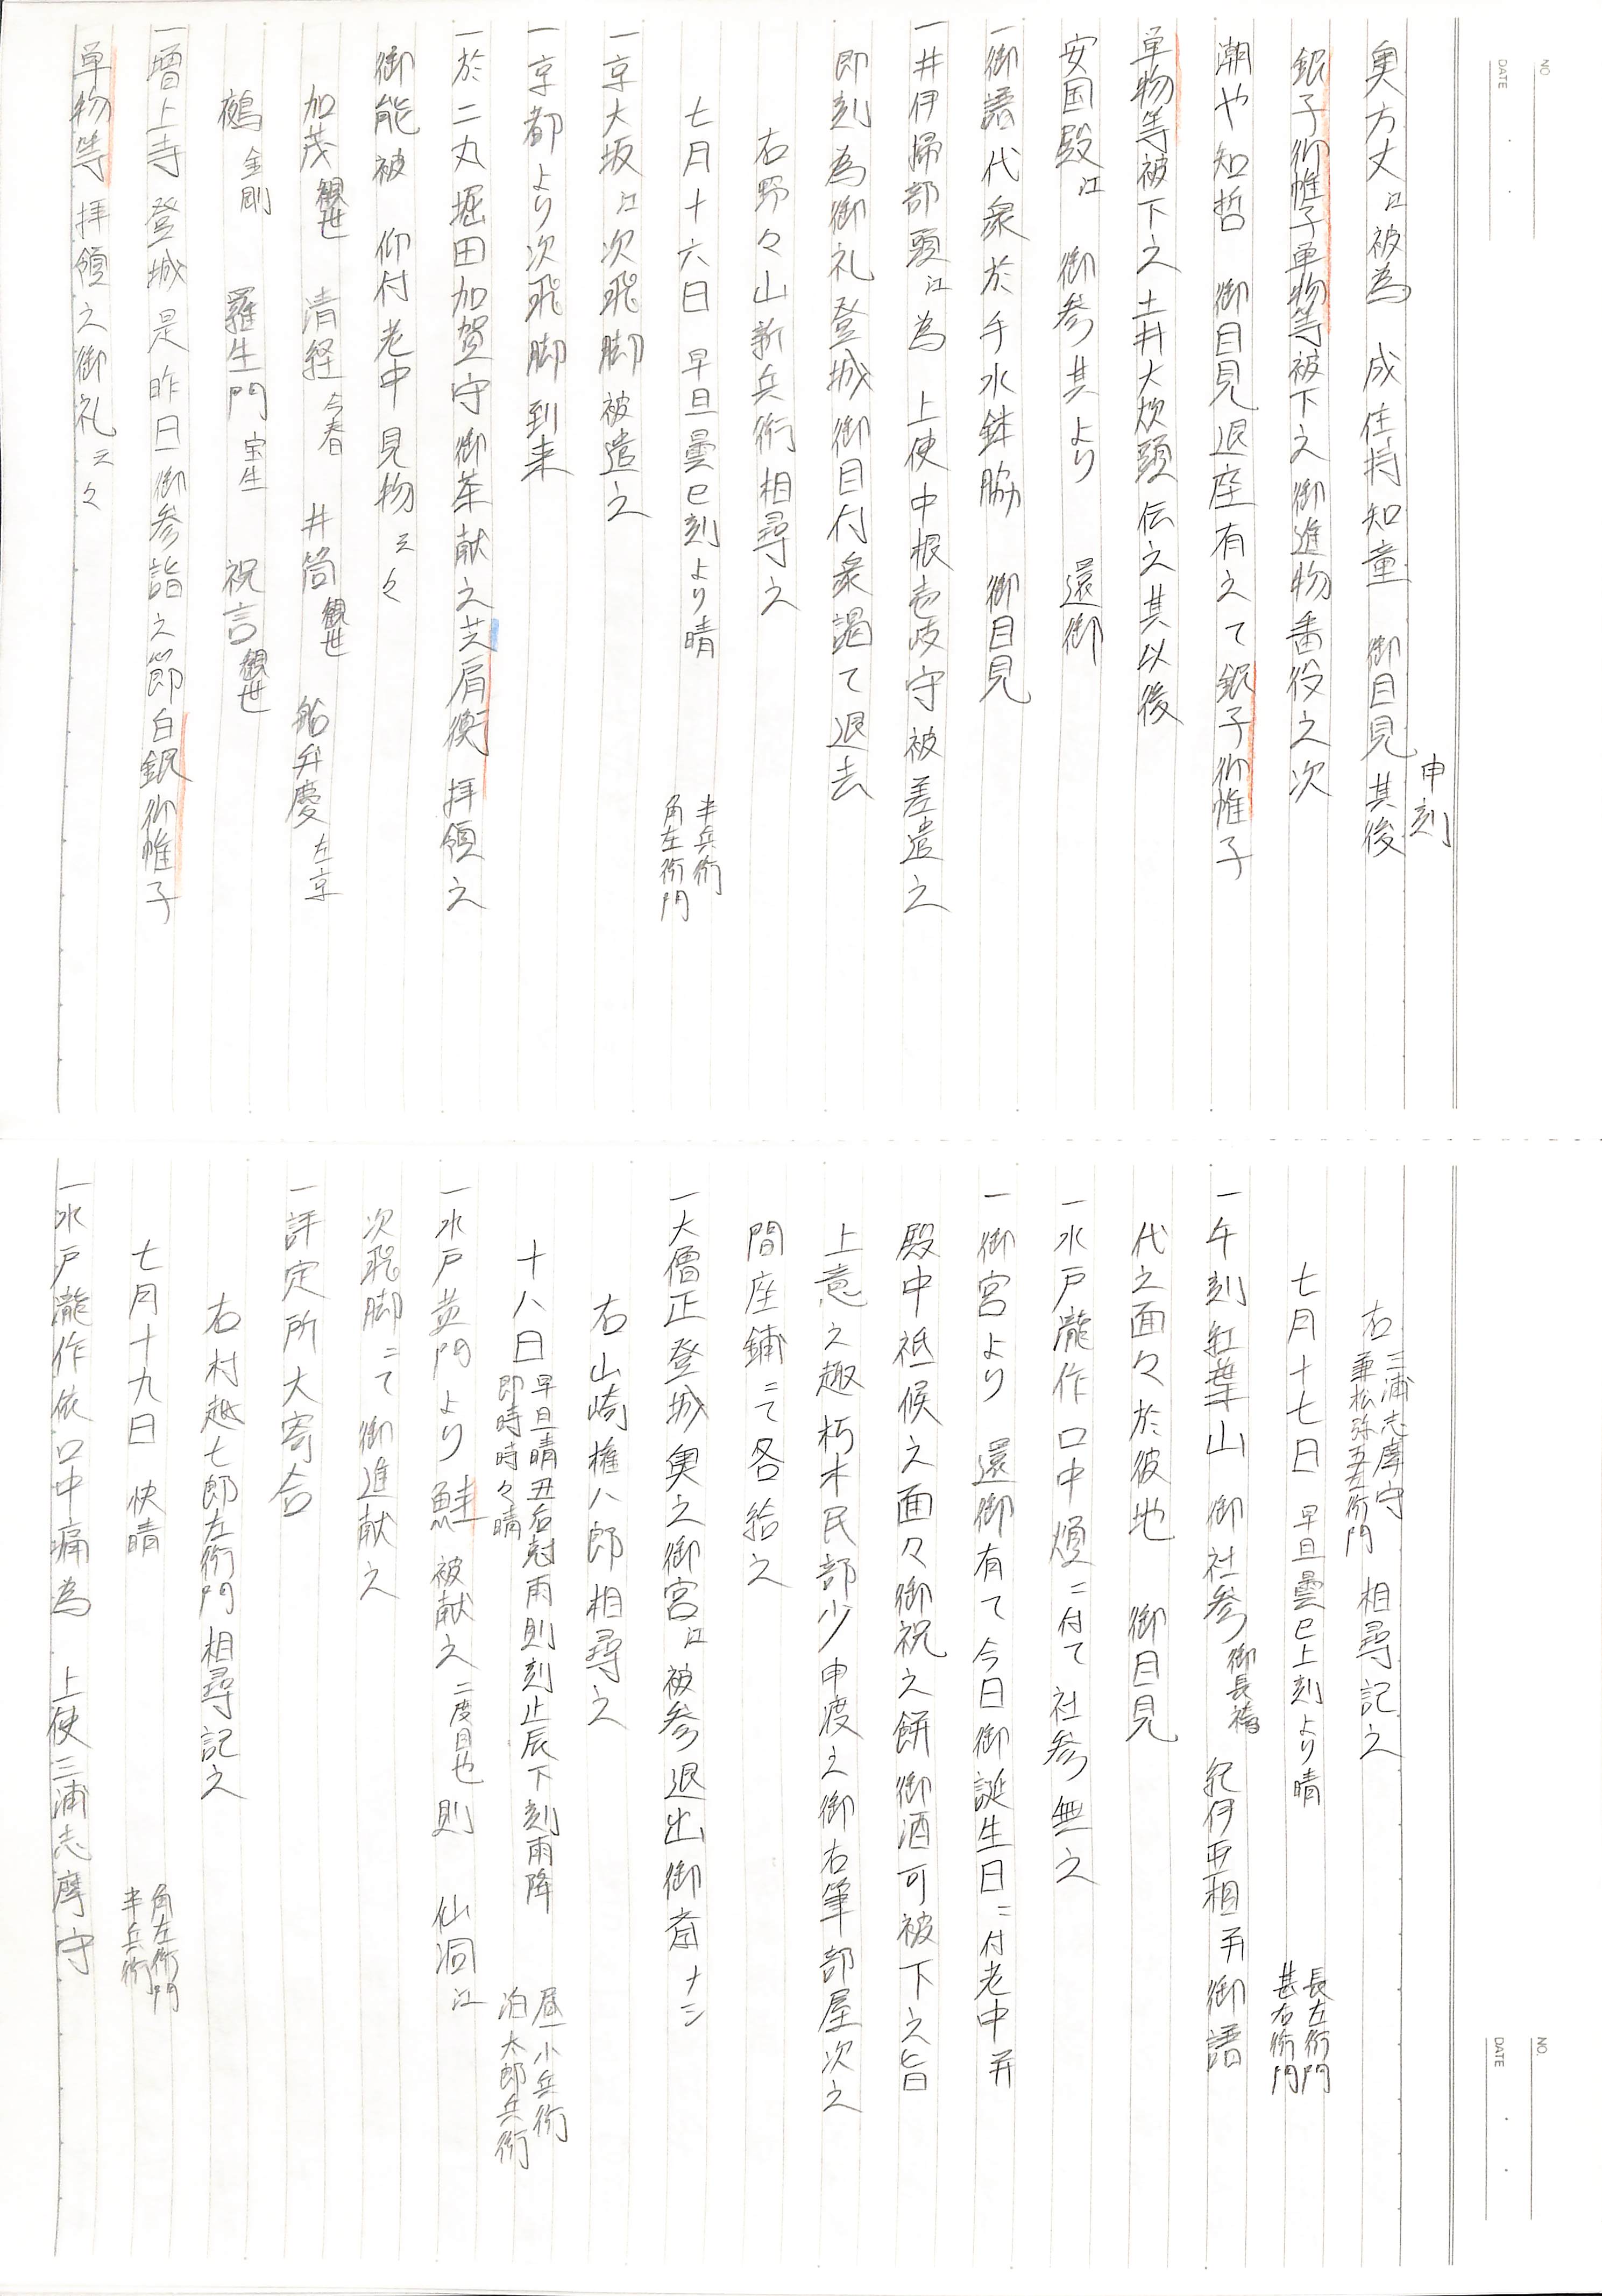 NO.
DATE
申刻
奥方丈江被為　成住持知童　御目見其後
銀子御帷子単物等被下之御進物番役之次
潮や知哲　御目見退座有之て銀子御帷子
単物等被下之土井大炊頭伝之其以後
安国殿江　御参其より　還御
一御譜代衆於手水鉢脇　御目見
一井伊掃部頭江為　上使中根壱岐守被差遣之
即刻為御礼登城御目付衆謁て退去
右野々山新兵衛相尋之
七月十六日　早旦曇巳刻より晴　半兵衛
角左衛門
一京大坂江次飛脚被遣之
一京都より次飛脚到来
一於二丸堀田加賀守御茶献之芝肩衝　拝領之
御能被　仰付老中見物云々
加茂　観世　清経　今春　井筒　観世　船弁慶　左京
鵺　金剛　羅生門　宝生　祝言　観世
一増上寺登城是昨日御参詣之節白銀御帷子
単物等拝領之御礼云々
NO.
DATE
右　三浦志摩守
兼松弥五左衛門　相尋記之
七月十七日　早旦曇巳上刻より晴　長左衛門
甚右衛門
一午刻紅葉山　御社参　御長袴　紀伊亜相并御譜
代之面々於彼地　御目見
一水戸瀧作口中煩ニ付て社参無之
一御宮より　還御有て今日御誕生日ニ付老中并
殿中祗候之面々御祝之餅御酒可被下之旨
上意之趣朽木民部少申渡之御右筆部屋次之
間座鋪ニて各給之
一大僧正登城奥之御宮江被参退出御斎ナシ
右山崎権八郎相尋之
十八日　早旦晴丑后刻雨則刻止辰下刻雨降
即時時々晴　昼　小兵衛
泊　太郎兵衛
一水戸黄門より鮭　被献之　二度目也　則　仙洞江
次飛脚ニて御進献之
一評定所大寄合
右村越七郎左衛門相尋記之
七月十九日　快晴　角左衛門
半兵衛
一水戸瀧作依口中痛為　上使三浦志摩守